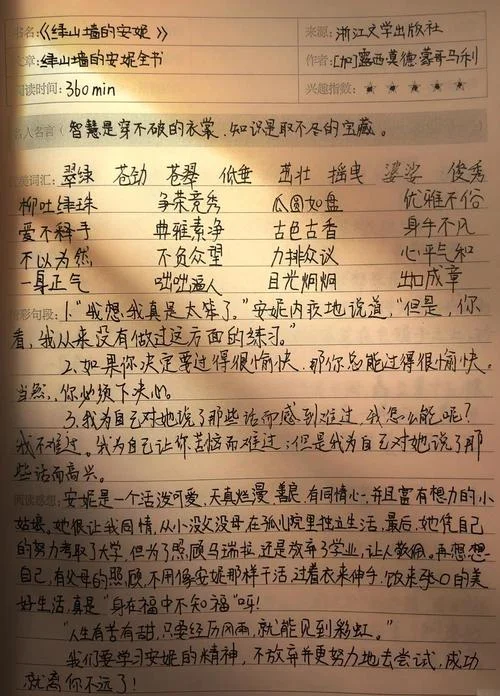 书名:《绿山墙的安妮》 来源:浙江文学出版社
文章:绿山墙的安妮全书 作者:[加]露西莫德蒙哥马利
阅读时间:360min 兴趣指数:★ ★ ★ ★ ★
名人名言(智慧是穿不破的衣裳,知识是取不尽的宝藏。
词汇: 翠绿 苍劲 苍翠 低垂 茁壮 摇曳 婆娑 俊秀
柳吐绿珠 争荣竞秀 瓜圆如盘 优雅不俗
爱不释手 典雅素净 古色古香 身手不凡
不以为然 不负众望 力排众议 心平气和
一身正气 咄咄逼人 目光炯炯 出口成章
精彩句段:1."我想我真是太笨了。"安妮内疚地说道,"但是,你
看,我从来没有做过这方面的练习。"
2.如果你决定要过得很愉快,那你总能过得很愉快。
当然,你必须下决心。
3.我为自己对她说了那些话而感到难过,我怎么能呢?
我不难过。我为自己让你苦恼而难过;但是我为自己对她说了那
些话而高兴。
阅读感想:安妮是一个活泼可爱,天真烂漫,善良,有同情心,并且富有想力的小
姑娘。她很让我同情,从小没父没母在孤心院里独立生活,最后,她凭自己
的努力考取了大学,但为了照顾马瑞拉,还是放弃了学业,让人敬佩。再想想
自己,有父母的照顾,不用像安妮那样干活,过着衣来伸手,饭来张口的美
好生活,真是"身在福中不知福"呀!
"人生有苦有甜,只要经历风雨,就能见到彩虹。"
我们要学习安妮的精神,不放弃并更努力地去尝试,成功
就离你不远了!